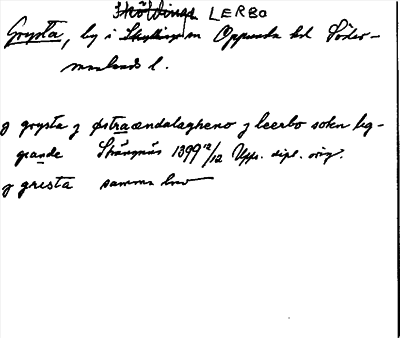 Sköldinge LERBO
Grysta, by i Skyttinge sn Oppunda hd Söder-
manlands l.
j grysta j østraændalagheno j leerbo sokn lig-
grande Strängnäs 1399 12/12 Upps. dipl. orig.
j gresta samma brev